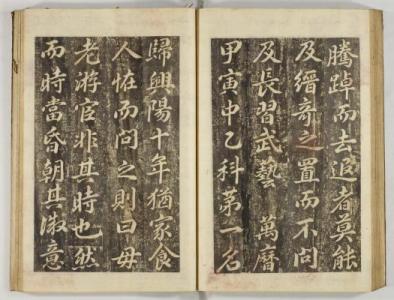 騰踔而去追者莫能
及縉奇之置而不問
及長習武藝 萬曆
甲寅中乙科第一名
歸興陽十年猶家食
人恠而問之則曰毋
老游官非其時也然
而時當昏朝其微意